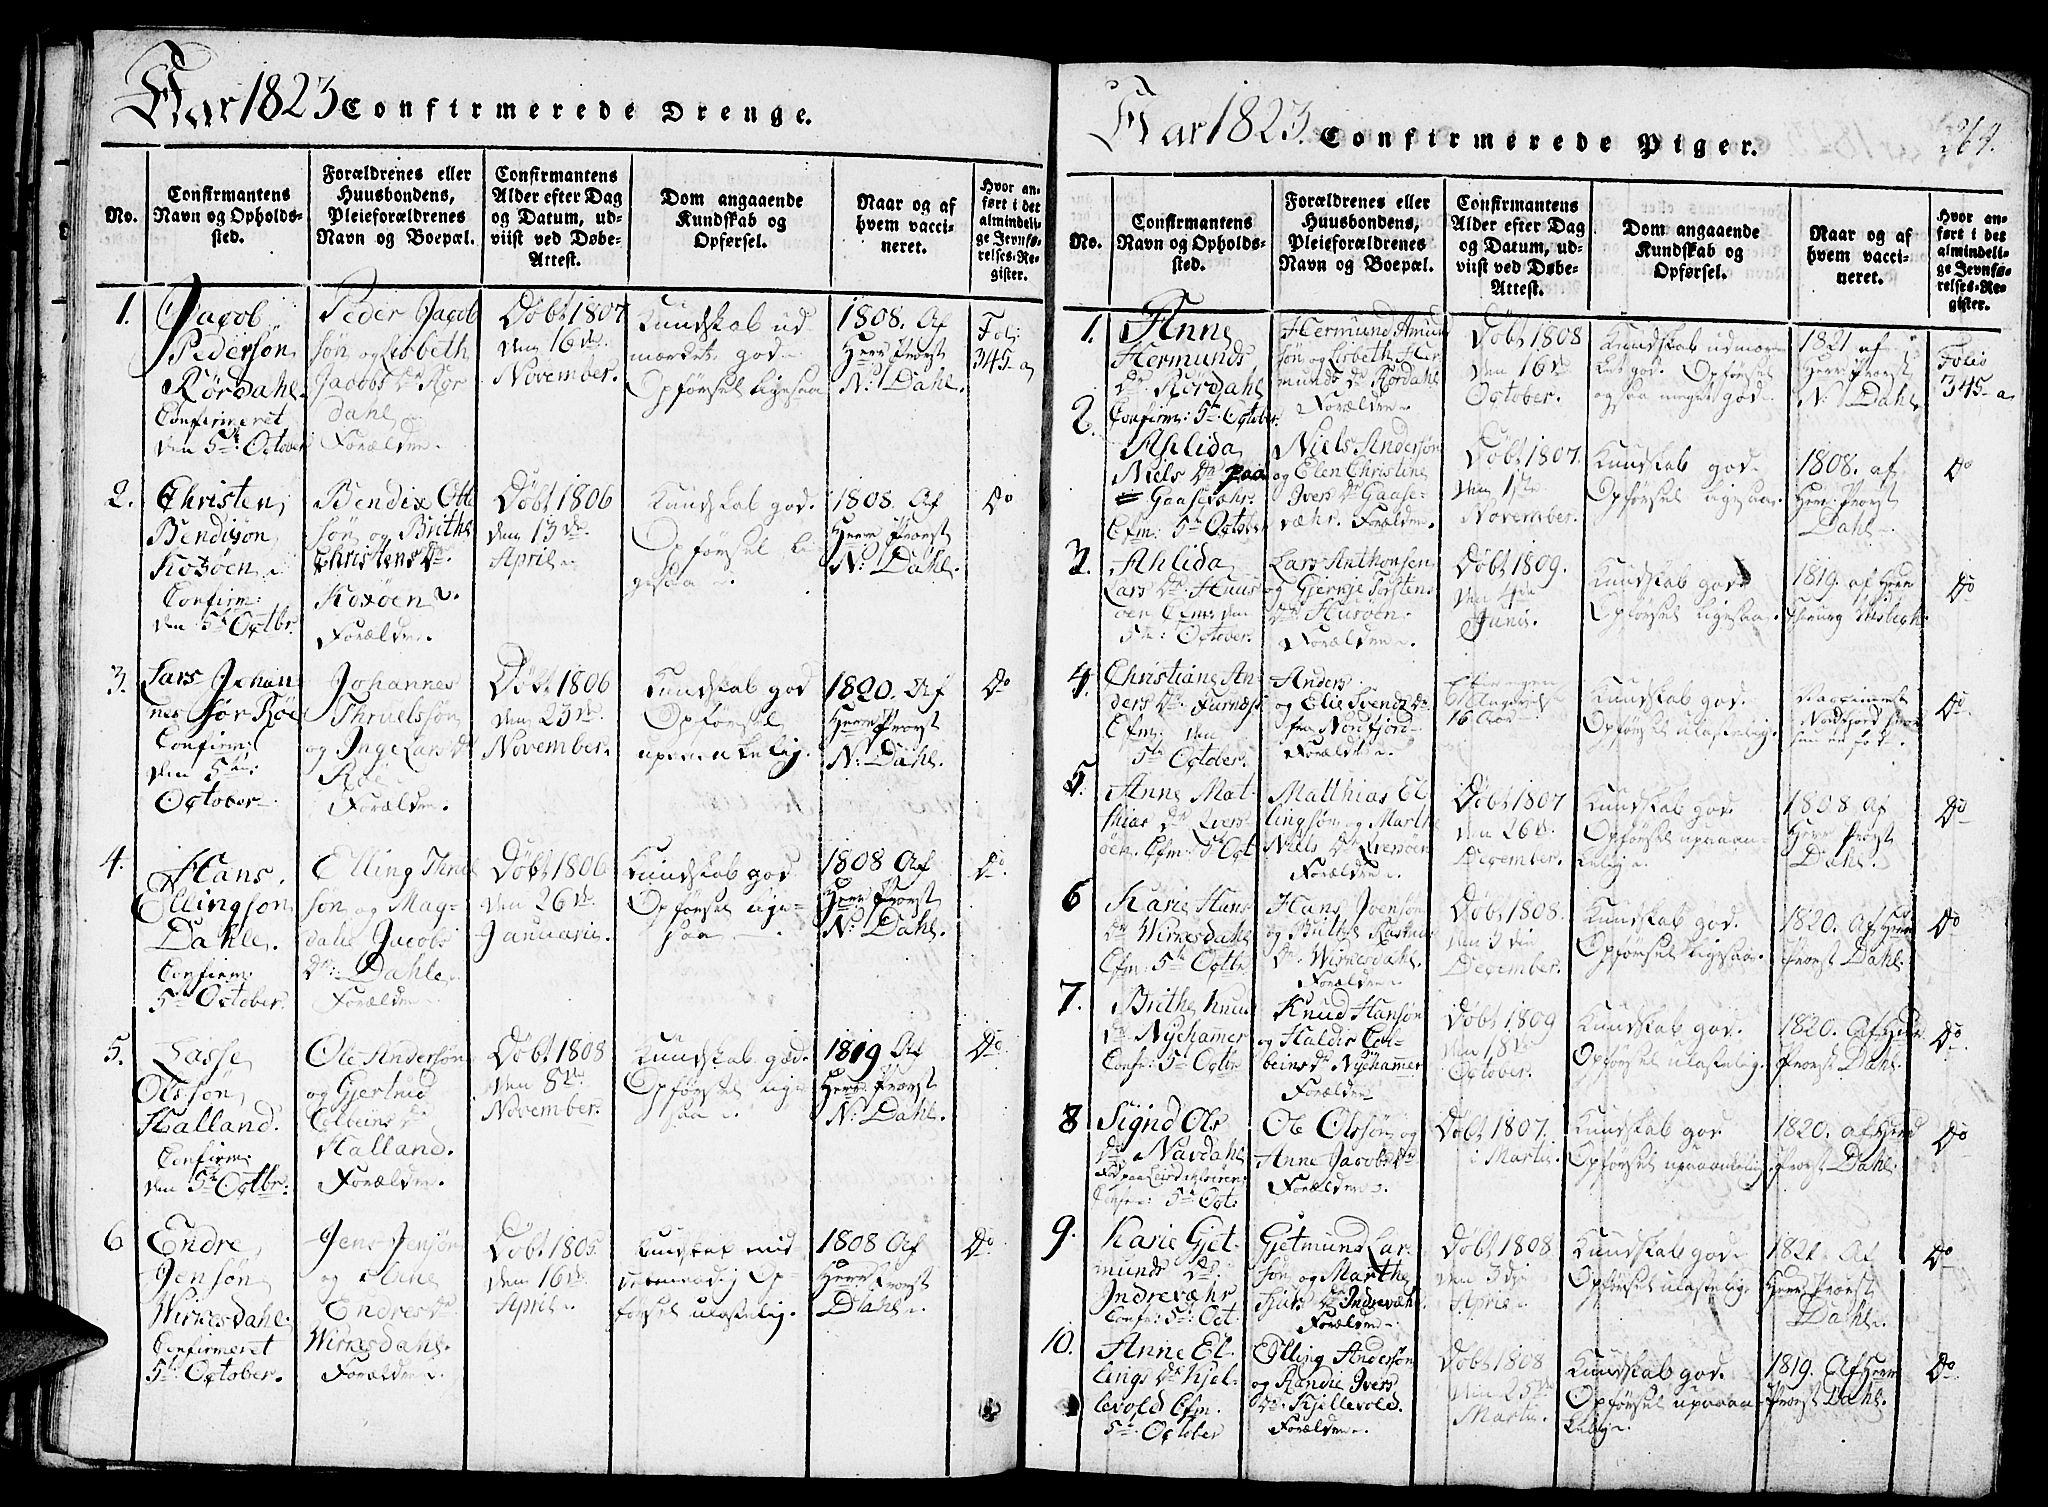 Aar 1823 Confirmerede Drenge.
No.
Confirmantens
Navn og Opholds-
sted.
Forældrenes eller
Huusbondens,
Pleieforældrenes
Navn og Boepæl.
Confirmantens
Alder efter Dag
og Datum, ud-
viist ved Døbe-
Attest.
Dom angaaende
Kundskab og
Opførsel.
Naar og af
hvem vacci-
neret.
Hvor an-
ført i det
almindeli-
ge Jevnfø-
relses-Re-
gister.
1.
Jacob
Pedersøn
Rørdahl.
Confirmeret
den 5te October
Peder Jacob
søn og Lisbeth
Jacobs Dr Rør
dahl
Forældre.
Døbt 1807
den 16de
November.
Kundskab ud-
mærket god
Opførsel ligesaa
1808. Af
Herr Provst
N: Dahl.
Fol:
345-a
2.
Christen
Bendixøn
Koxøen
Confirm:
den 5te Octbr.
Bendix Ott
søn og Brithe
Christens Dr.
Koxøen
Forældre.
Døbt 1806
den 13de
April
Kundskab god.
Opførsel li-
gesaa
1808. Af
Herr Provst
N: Dahl.
Do
3.
Lars Johan
nes sør Røe
Confirm:
den 5te
October
Johannes
Thruelssøn
og Inge Lars Dr
Røe
Forældre.
Døbt 1806
den 23de
November.
Kundskab god
Opførsel
upaaankelig.
1820. Af
Herr Provst
N: Dahl.
Do
4.
Hans
Ellingsøn
Dahle.
Confirm:
5te October.
Elling Thrue
søn og Mag-
dahe Jacobs
Dr: Dahle
Forældre
Døbt 1806
den 26de
Januarie.
Kundskab god
Opførsel lige-
saa
1808 Af
Herr Provst
N: Dahl.
Do
5.
Lasse
Olssøn
Halland.
Confirm:
den 5te Octbr:
Ole Andersøn
og Gjertrud
Colbeins Dr
Halland.
Forældre.
Døbt 1808
den 8de
November.
Kundskab god.
Opførsel lige
saa
1819 Af
Herr Provst
N: Dahl.
Do
6
Endre
Jensøn
Wirnesdahl.
Confirmeret
5te October.
Jens Jensøn
og Aline
Endres Dr
Wirnesdahl.
Forældre.
Døbt 1805.
den 16de
April
Kundskab mid
delmaadig Op-
førsel ulastelig.
1808 Af
Herr Provst
Dahl.
Do
Aar 1823. Confirmerede Piger.
264.
No.
Confirmantens
Navn og Opholds-
sted.
Forældrenes eller
Huusbondens,
Pleieforældrenes
Navn og Boepæl.
Confirmantens
Alder efter Dag
og Datum, ud-
viist ved Døbe-
Attest.
Dom angaaende
Kundskab og
Opførsel.
Naar og af
hvem vacci-
neret.
Hvor an-
ført i det
almindeli-
ge Jevnfø-
relses-Re-
gister.
1.
Anne
Hermunds
Dr. Rørdahl
Confirm: 5te October
Hermund Amund
søn og Lisbeth Her
munds Dr Rørdahl
Forældre.
Døbt 1808
den 16de
October.
Kundskab udmær-
ket god. Opførsel
ogsaa meget god.
1821 af
Herr Provst
N: Dahl.
Folio
345-a
2.
Ahlida
Niels Dr paa
Gaasevæhr.
Cfm: 5te October
Niels Andersøn
og Elen Christine
Ivers Dr Gaase-
væhr. Forældre.
Døbt 1807.
den 1ste
November.
Kundskab god
Opførsel ligesaa.
1808. af
Herr Provst
Dahl
Do
3.
Ahlida
Lars Dr. Huus
øen Cfm: den
5te October.
Lars Anthonsen
og Gjertje Torstens
Dr Husøen
Forældre.
Døbt 1809.
den 4de
Junii
Kundskab god
Opførsel ligesaa.
1819. af Herr
Do
4.
Christiane An
ders Dr. Furnæs
Cfm: den
5te October.
Anders
og Elie Svends Dr
fra Nordfjord
Forældre.
16 Aar
Kundskab god.
Opførsel ulastelig.
Vaccineret
Nordfjord
Do
5.
Anne Mat-
thias Dr Qvers-
øen. Cfm: 5te Oct
Matthias El
lingsøn og Marth
Niels Dr Qversøen
Forældre
Døbt 1807
den 26de
December.
Kundskab god.
Opførsel upaaan-
kelig
1808 Af
Herr Provst
Dahl.
Do
6
Karie Hans
Dr Wirnesdahl
Cfm: 5te Octbr
Hans Ivensøn
og Brithe Rasmus
Dr. Wirnesdahl.
Forældre
Døbt 1808.
den 3die
December.
Kundskab god.
Opførsel ligesaa
1820. Af Herr
Provst Dahl.
Do
7.
Brithe Knuds
Dr Nyehamer
Confr: 5te Octbr
Knud Hansøn
og Haldis Col-
beins Dr Nyehamer
Forældre
Døbt 1809
den 18de
October.
Kundskab god.
Opførsel ulastelig.
1820. Af Herr
Provst Dahl.
Do
8
Signd Ols
Dr. Navdahl
Confr: 5te Oct.
Ole Olssøn og
Anne Jacobs Dr
Forældre.
Døbt 1807.
i Martii.
Kundskab god
Opførsel upaaankelig.
1820. af Herr
Provst Dahl.
Do
9.
Karie Get-
munds Dr.
Indrevæhr
Confr: 5te Oct
Getmund Lar-
søn og Marthe
Siurs Dr Indrevæhr
Forældre.
Døbt 1808
den 3die
April
Kundskab god
Opførsel ulastelig
1821. Af
Herr Provst
Dahl.
Do
10.
Anne El-
lings Dr Kjel-
levold Cfm.
5te October
Elling Andersøn
og Randie Ivers
Dr. Kjellevold.
Forældre.
Døbt 1808
den 25de
Martii.
Kundskab god.
Opførsel upaaan-
kelig.
1819. Af Herr
Provst Dahl.
Do